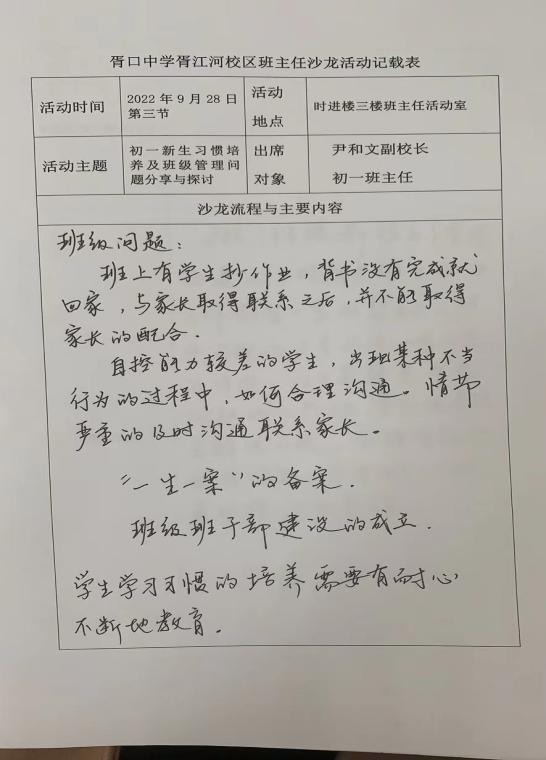 胥口中学胥江河校区班主任沙龙活动记载表
活动时间
2022 年 9 月 28 日
第三节
活动
地点
时进楼三楼班主任活动室
活动主题
初一新生习惯培
养及班级管理问
题分享与探讨
出席
对象
尹和文副校长
初一班主任
沙龙流程与主要内容
班级问题：
班上有学生抄作业，背书没有完成就
回家，与家长取得联系之后，并不能取得
家长的配合．
自控能力较差的学生，出现某种不当
行为的过程中，如何合理沟通。情节
严重的及时沟通联系家长。
“一生一案”的备案．
班级班干部建设的成立．
学生学习习惯的培养需要有耐心
不断地教育．